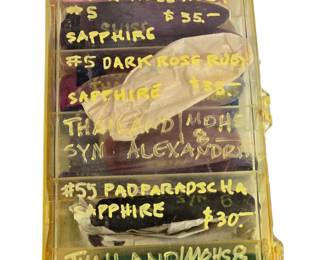 #5 $35.-
SAPPHIRE
#5 DARK ROSE RUBY
SAPPHIRE $35.-
THAILAND MOHS 8
SYN. ALEXANDRI
#55 PADPARADSCHA
SAPPHIRE $30.-
THAILAND MOHS 8